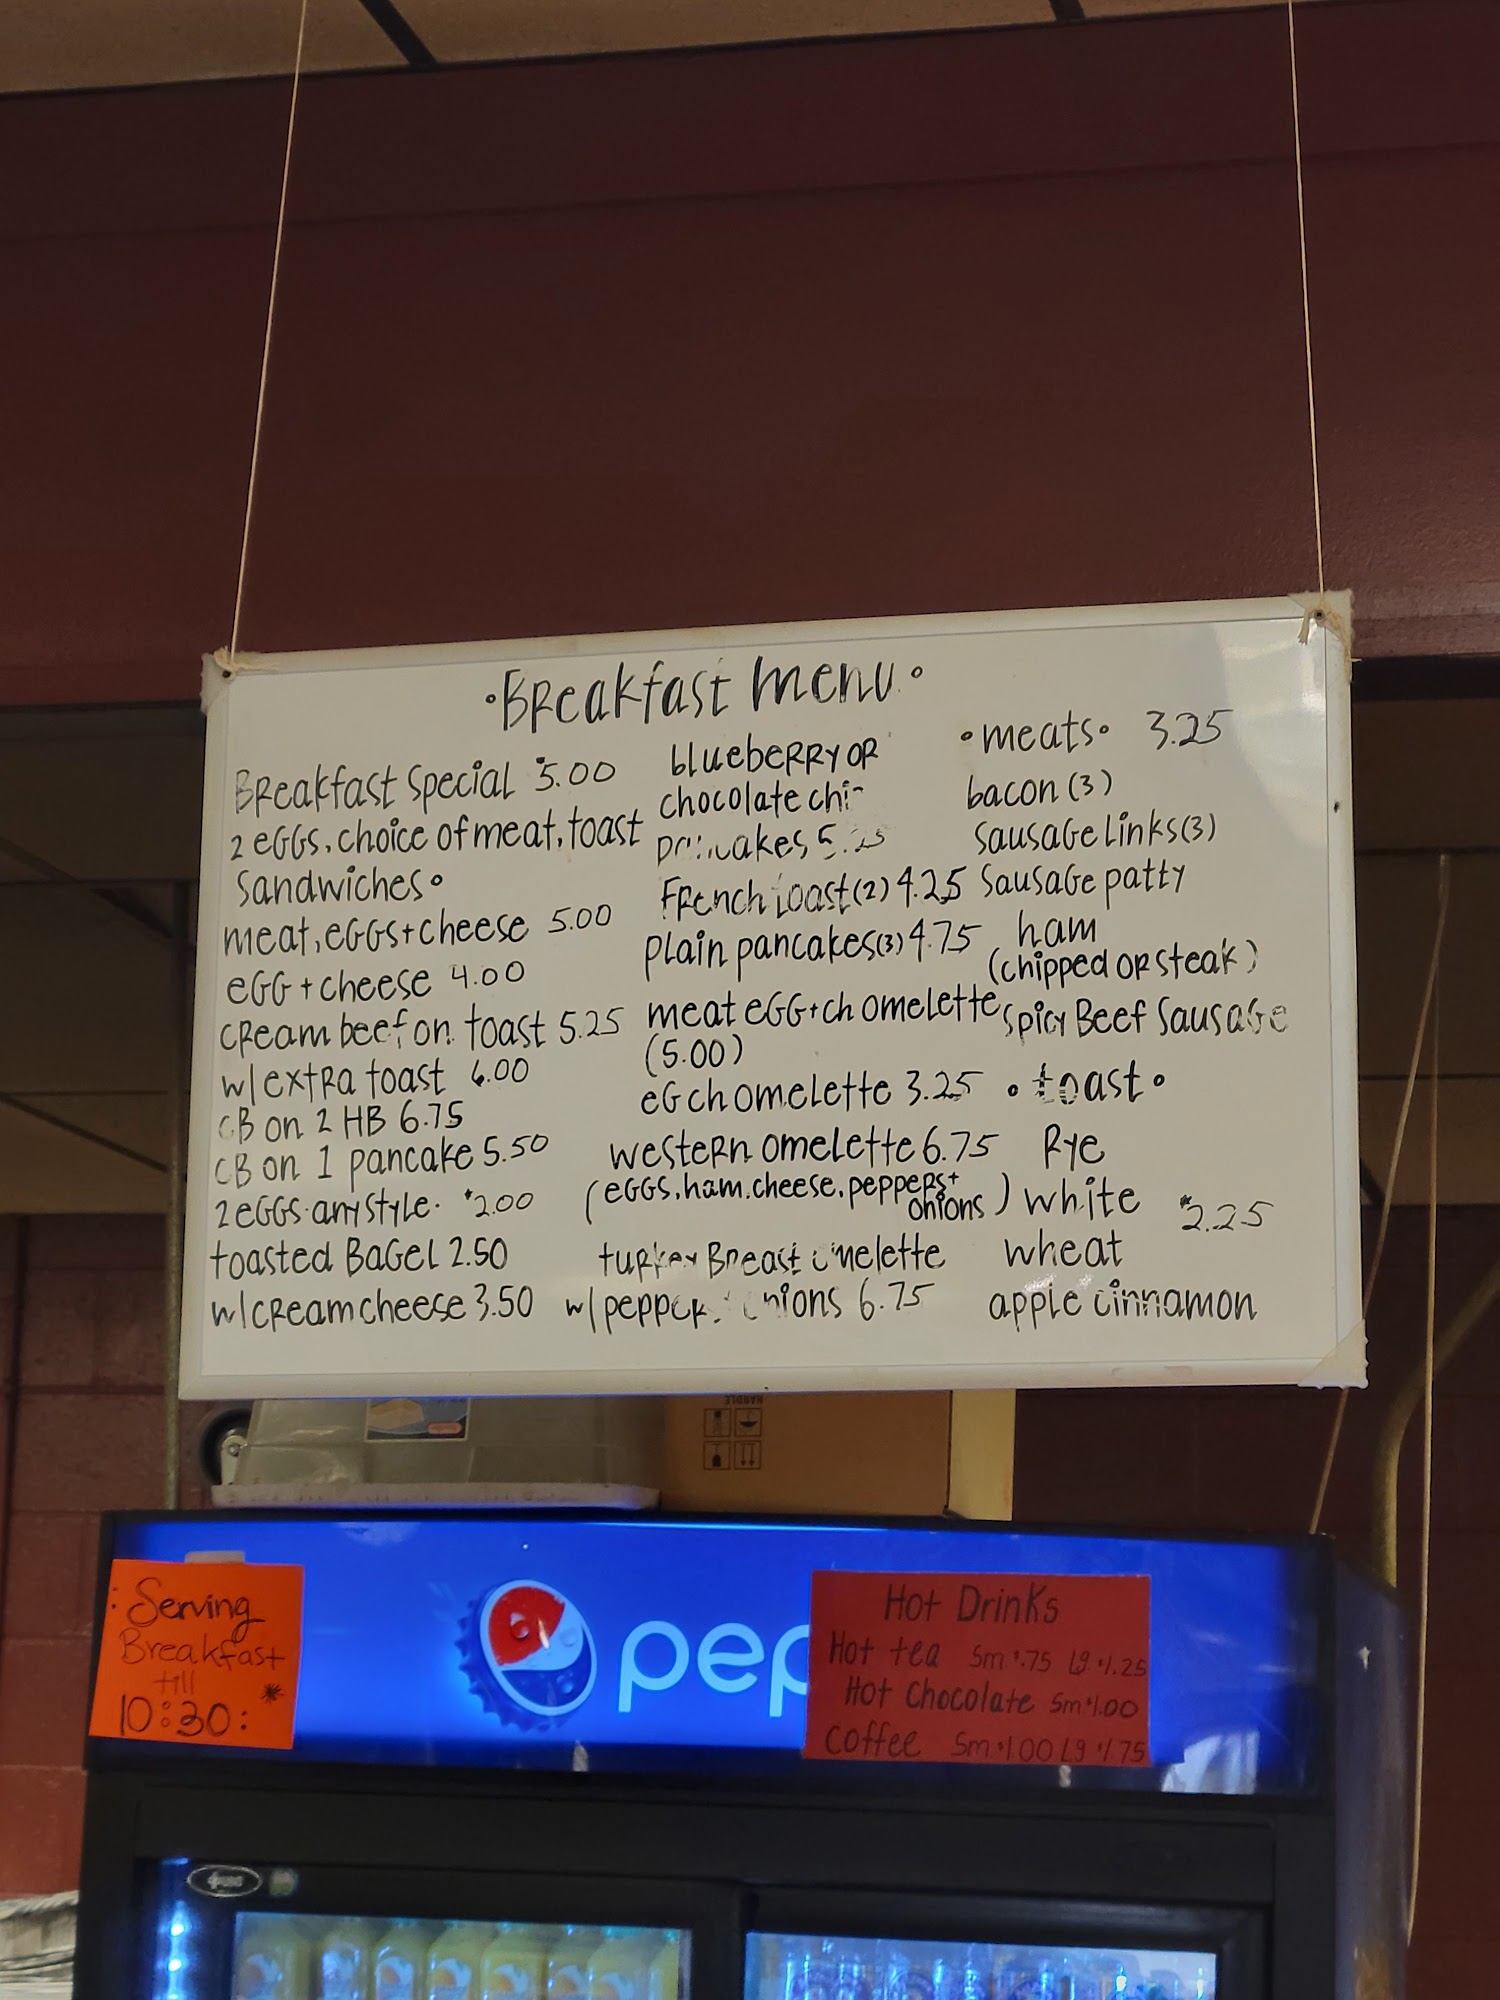 •Breakfast menu•
Breakfast special 5.00
2 eggs, choice of meat, toast
Sandwiches•
meat, eggs + cheese 5.00
egg + cheese 4.00
cream beef on toast 5.25
w/ extra toast 6.00
CB on 2 HB 6.75
CB on 1 pancake 5.50
2 eggs any style • $2.00
toasted Bagel 2.50
w/ cream cheese 3.50
blueberry or
chocolate chi
pancakes 5.25
French toast (2) 4.25
plain pancakes (3) 4.75
meat egg + ch omelette
(5.00)
eg ch omelette 3.25
western omelette 6.75
(eggs, ham, cheese, peppers +
onions)
turkey Breast omelette
w/ pepper onions 6.75
•meats• 3.25
bacon (3)
sausage links (3)
sausage patty
ham
(chipped or steak)
spicy Beef sausage
•toast•
Rye
white $2.25
wheat
apple cinnamon
HANDLE
: Serving
Breakfast
till
10:30: *
pep
Hot Drinks
Hot tea Sm $.75 Lg $1.25
Hot Chocolate Sm $1.00
Coffee Sm $1.00 Lg $1.75